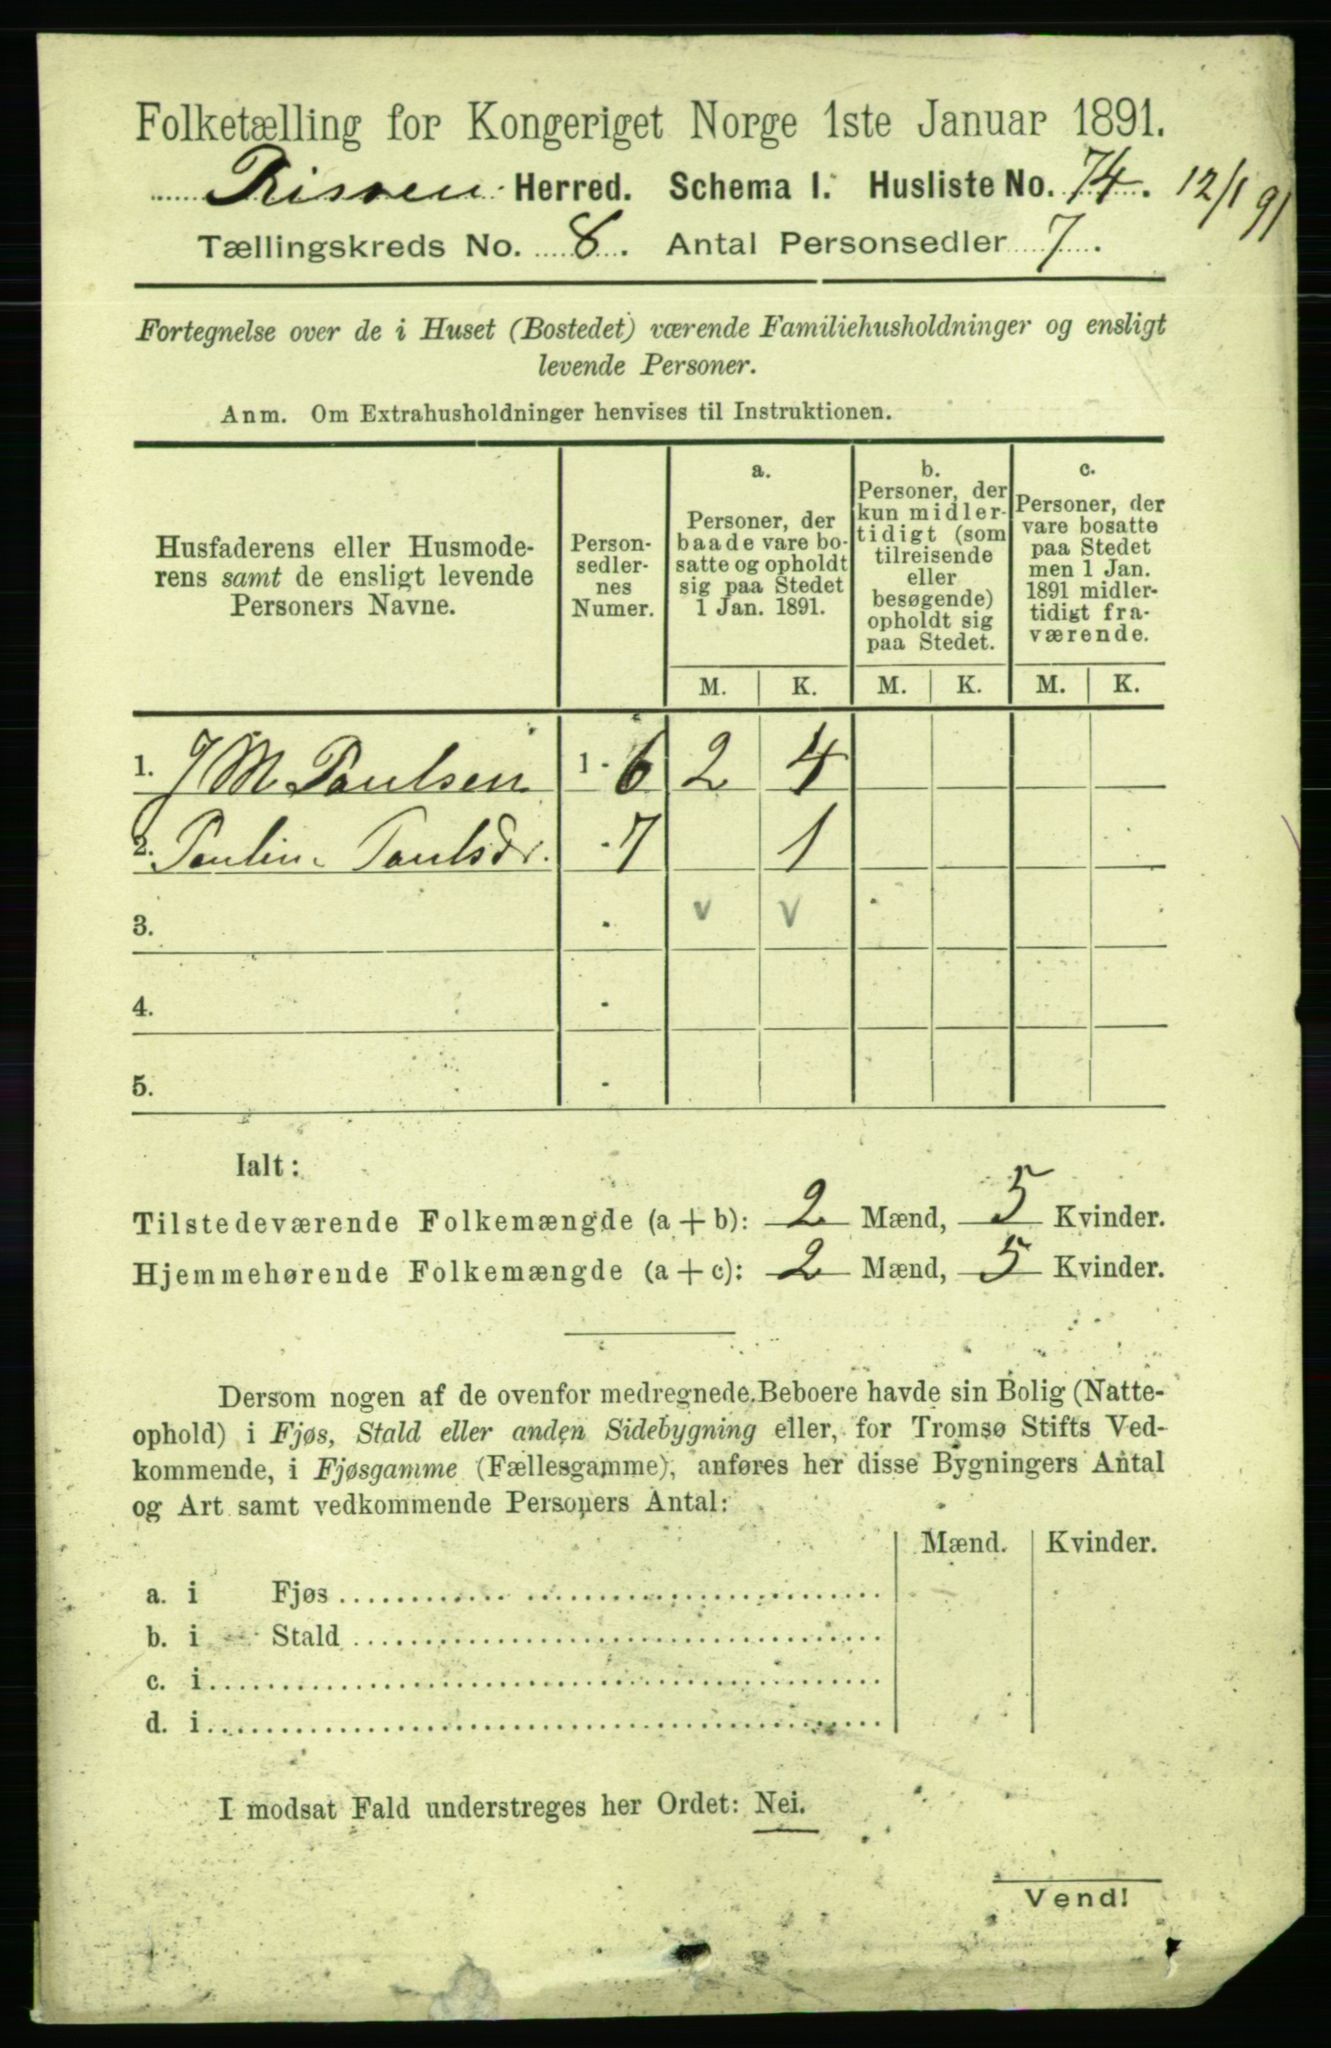 Folketælling for Kongeriget Norge 1ste Januar 1891.
Rissen Herred. Schema I. Husliste No. 74. 12/1 91
Tællingskreds No. 8. Antal Personsedler 7.
Fortegnelse over de i Huset (Bostedet) værende Familiehusholdninger og ensligt
levende Personer.
Anm. Om Extrahusholdninger henvises til Instruktionen.
Husfaderens eller Husmode-
rens samt de ensligt levende
Personers Navne.
Person-
sedler-
nes
Numer.
a.
Personer, der
baade vare bo-
satte og opholdt
sig paa Stedet
1 Jan. 1891.
b.
Personer, der
kun midler-
tidigt (som
tilreisende
eller
besøgende)
opholdt sig
paa Stedet.
c.
Personer, der
vare bosatte
paa Stedet
men 1 Jan.
1891 midler-
tidigt fra-
værende.
M. K. M. K. M. K.
1. J M Paulsen 1 - 6 2 4
2. Paulin Paulsdr. - 7 1
3. - v v
4. -
5. -
Ialt:
Tilstedeværende Folkemængde (a + b): 2 Mænd, 5 Kvinder.
Hjemmehørende Folkemængde (a + c): 2 Mænd, 5 Kvinder.
Dersom nogen af de ovenfor medregnede Beboere havde sin Bolig (Natte-
ophold) i Fjøs, Stald eller anden Sidebygning eller, for Tromsø Stifts Ved-
kommende, i Fjøsgamme (Fællesgamme), anføres her disse Bygningers Antal
og Art samt vedkommende Personers Antal:
Mænd. Kvinder.
a. i Fjøs
b. i Stald
c. i
d. i
I modsat Fald understreges her Ordet: Nei.
Vend!